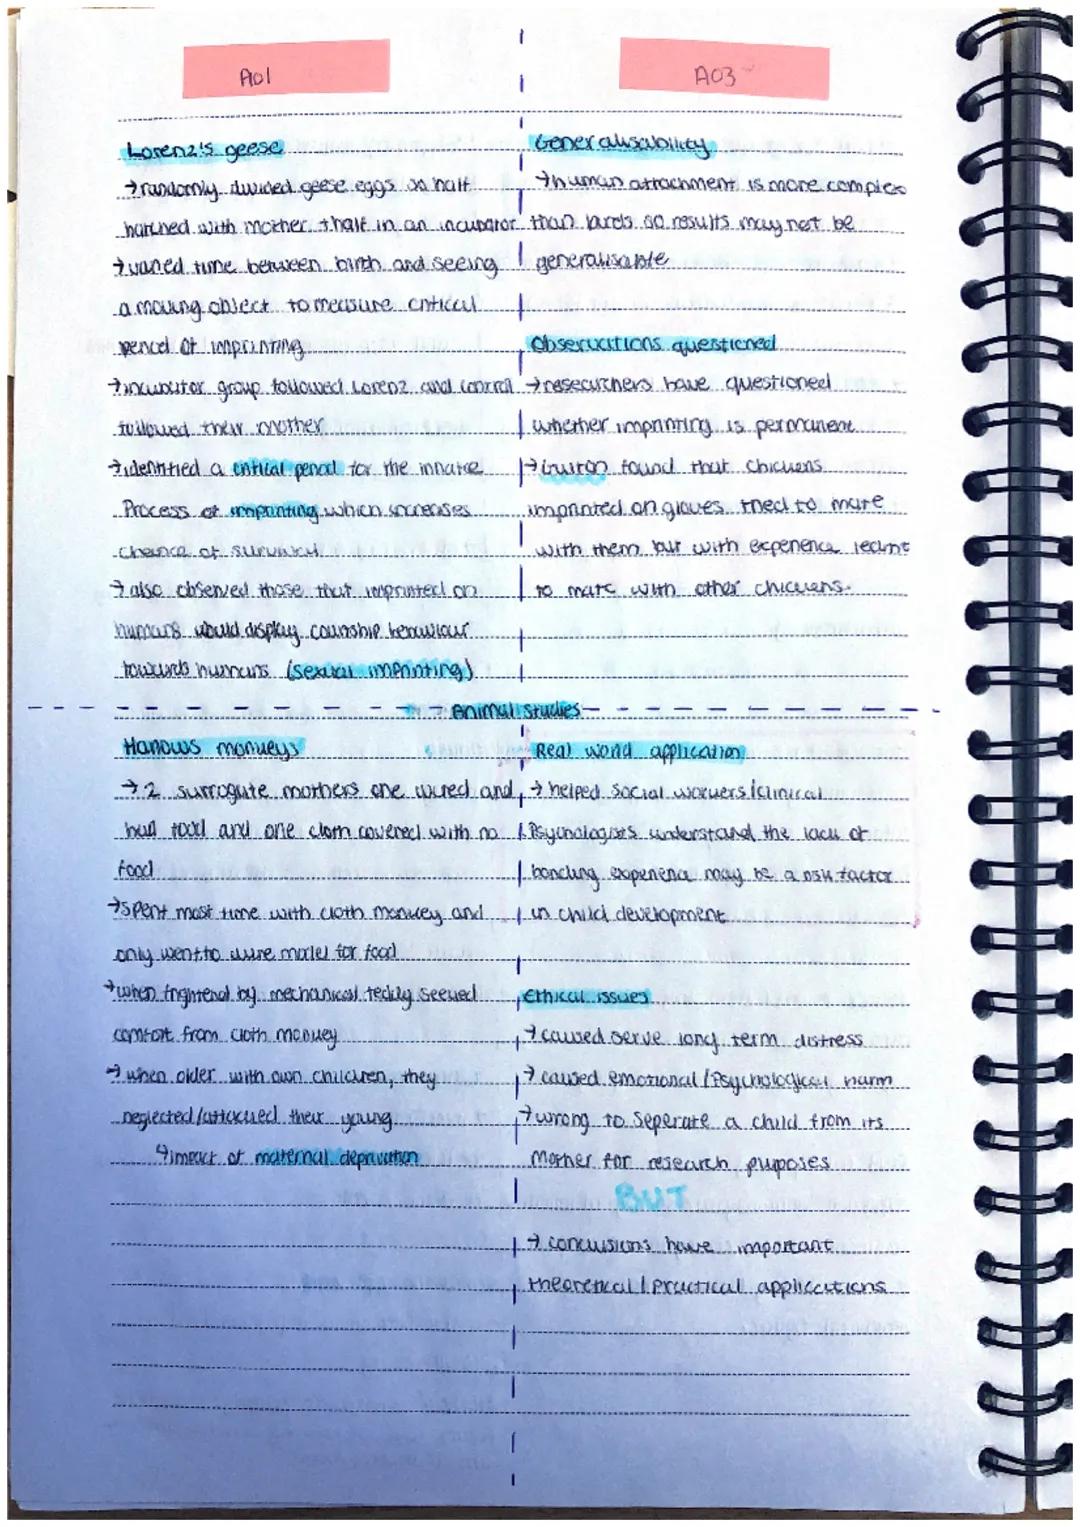 AO1
Lorenz's geese
→ randomly divided geese eggs so half
hatched with mother + half in an incubator
→ varied time between birth and seeing
a moving object to measure critical
period of imprinting
→ incubator group followed Lorenz and control
followed their mother
→ identified a critical period for the innate
Process of imprinting which increases
chance of survival
→ also observed those that imprinted on
humans would display courtship behaviour
towards humans (sexual imprinting)
AO3
Generalisability
→ human attachment is more complex
than birds so results may not be
generalisable
Observations questioned
→ researchers have questioned
whether imprinting is permanent
→ Guiton found that chickens
imprinted on gloves tried to mate
with them but with experience learnt
to mate with other chickens.
Animal Studies
Harlows monkeys
→ 2 surrogate mothers one wired and
had food and one cloth covered with no
food
→ Spent most time with cloth monkey and
only went to wire model for food
→ when frightened by mechanical teddy seeked
comfort from cloth monkey
→ when older with own children, they
neglected/attacked their young
↳ impact of maternal deprivation
Real world application
→ helped social workers/clinical
Psychologists understand the lack of
bonding experience may be a risk factor
in child development
Ethical issues
→ caused serve long term distress
→ caused emotional/Psychological harm
→ wrong to Seperate a child from its
Mother for research puposes
BUT
→ conclusions have important
theoretical/practical applications